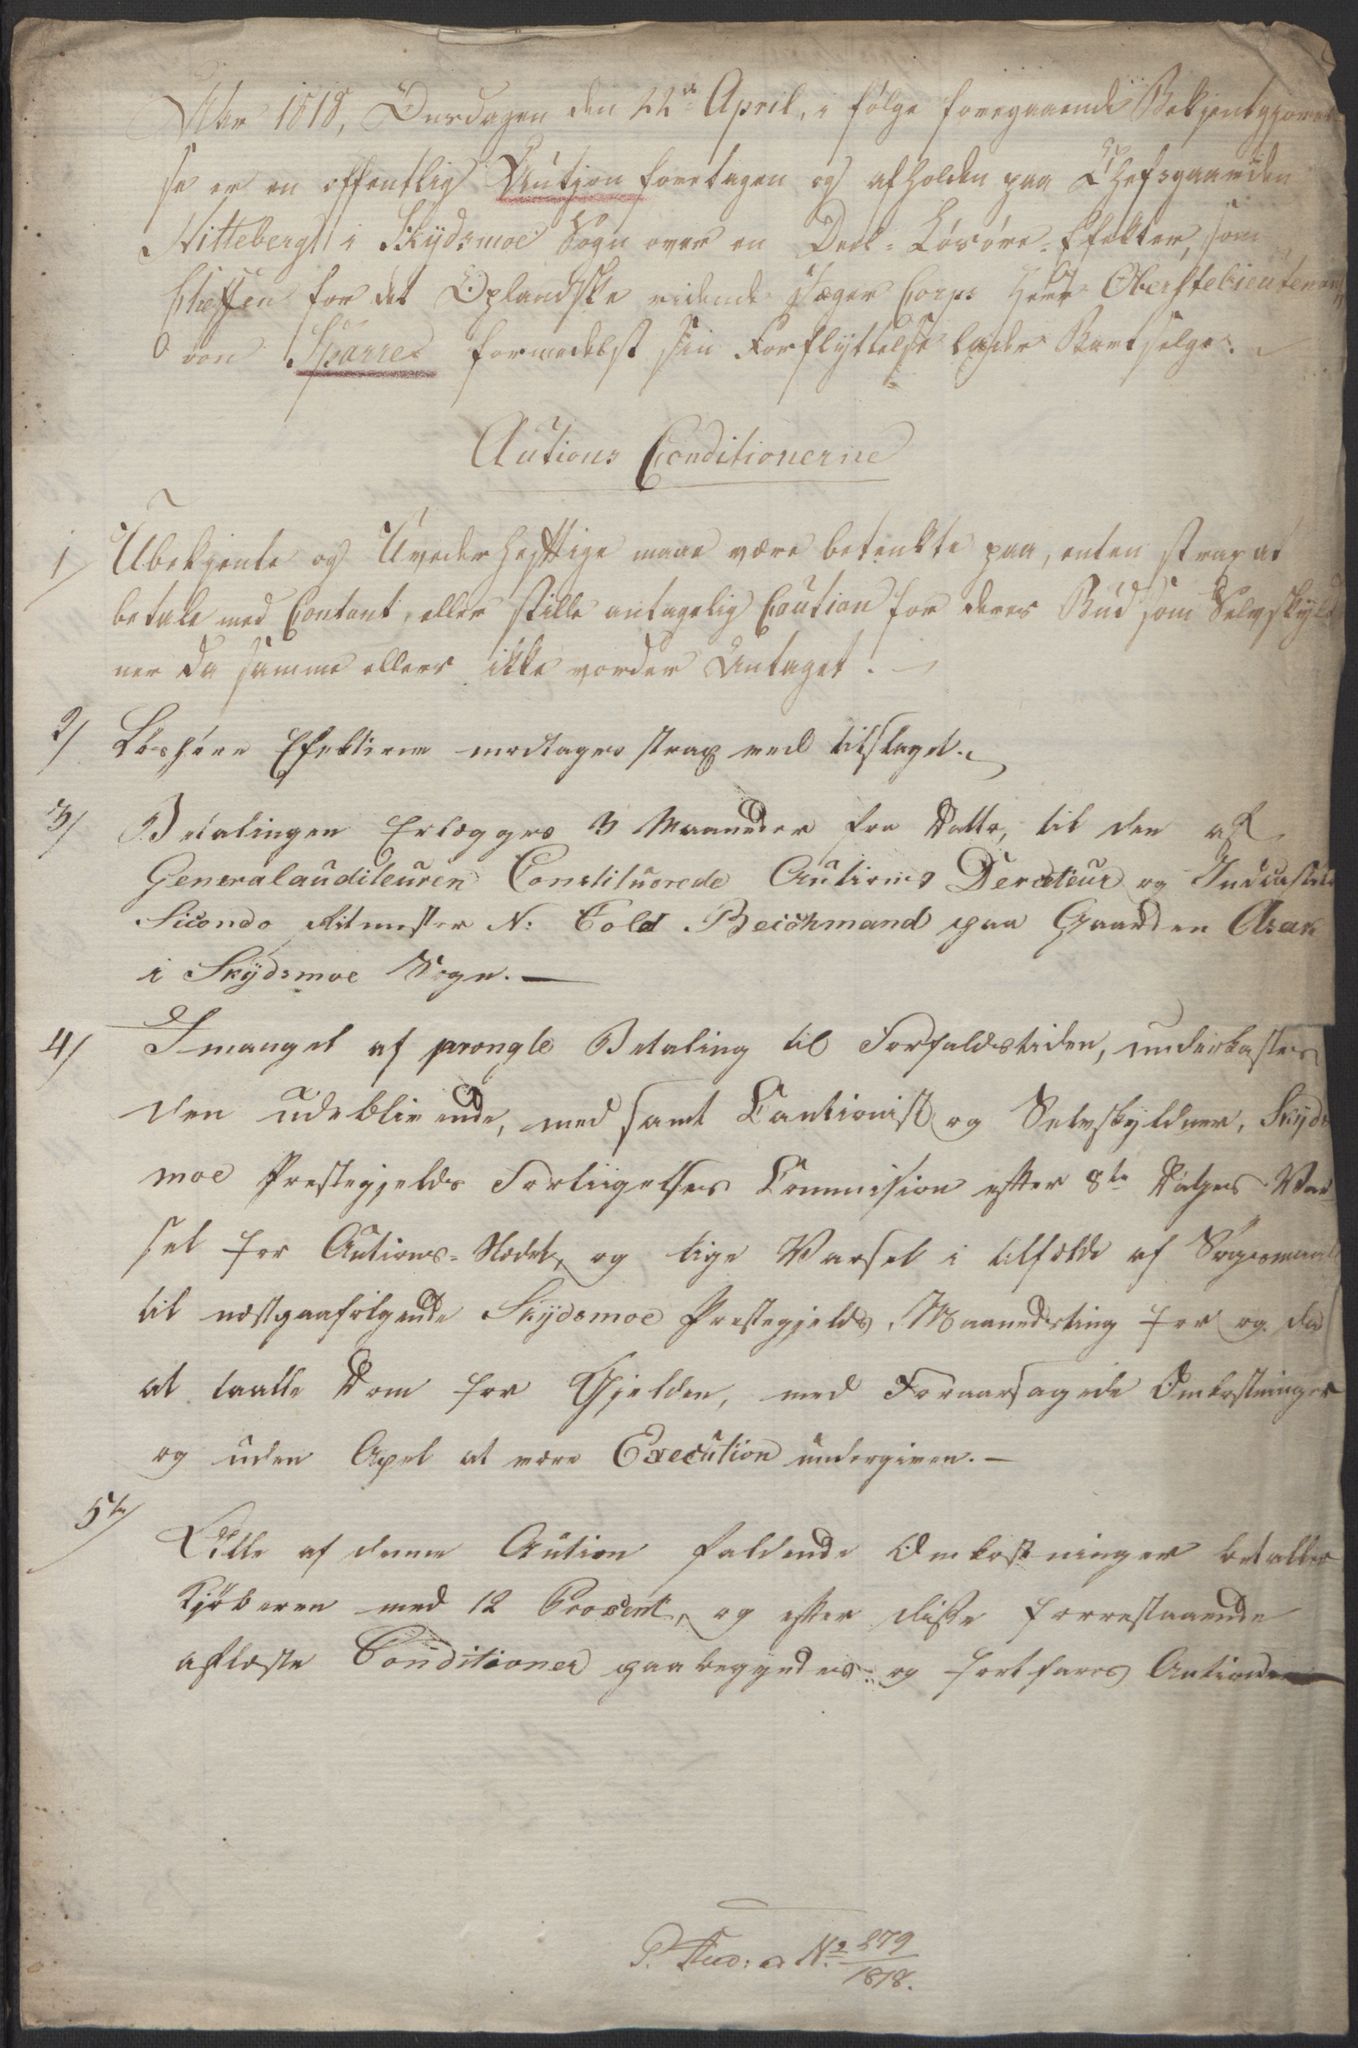 Aar 1818, Onsdagen den 22de April, i følge foregaaende Bekjentgjørel
se er en offentlig Auction foretagen og afholden paa Chefsgaarden
Nitteberg i Skydsmoe Sogn over en Deel Løsøre-Efekter, som
Cheffen for det Oplandske ridende Jæger Corps Herr Oberstelieutenant
von Sparre formedelst sin Forflyttelse lader Bortselge.
Autions Conditionerne
1/ Ubekjente og Uvederheftige maae være betenkte paa, enten strax at
betale med Contant, eller stille antagelig Caution for deres Bud som Selvskyld
ner da samme ellers ikke vorder Antaget.
2/ Løshøre Efekterne modtages strax ved tilslaget.
3/ Betalingen Erlægges 3 Maaneder fra Datto, til den af
Generalauditeuren Constituerede Autions Derecteur og
Secondo Ritmester N: Told Beichmand paa Gaarden Asak
i Skydsmoe Sogn.
4/ I mangel af promte Betaling til Forfaldstiden, underkastes
den udeblivende, med samt Cautionist og Selvskyldner, Skyds
moe Prestegjelds Forliigelses Commision efter 8te Dages Var
sel for Autions-Stædet, og lige Varsel i tilfælde af Søgsmaal
til næstpaafølgende Skydsmoe Prestegjelds Maanedsting for og da
at taalle Dom for Gjelden, med Foraarsagede Omkostninger
og uden Apel at være Execution undergiven.
5te/ Alle af denne Aution faldende Omkostninger betaller
Kjøberen med 12 Procent, og efter disse forrestaaende
aflæste Conditioner paabegyndes og fortfares Autionen
P. Aud: a No 279
1818.